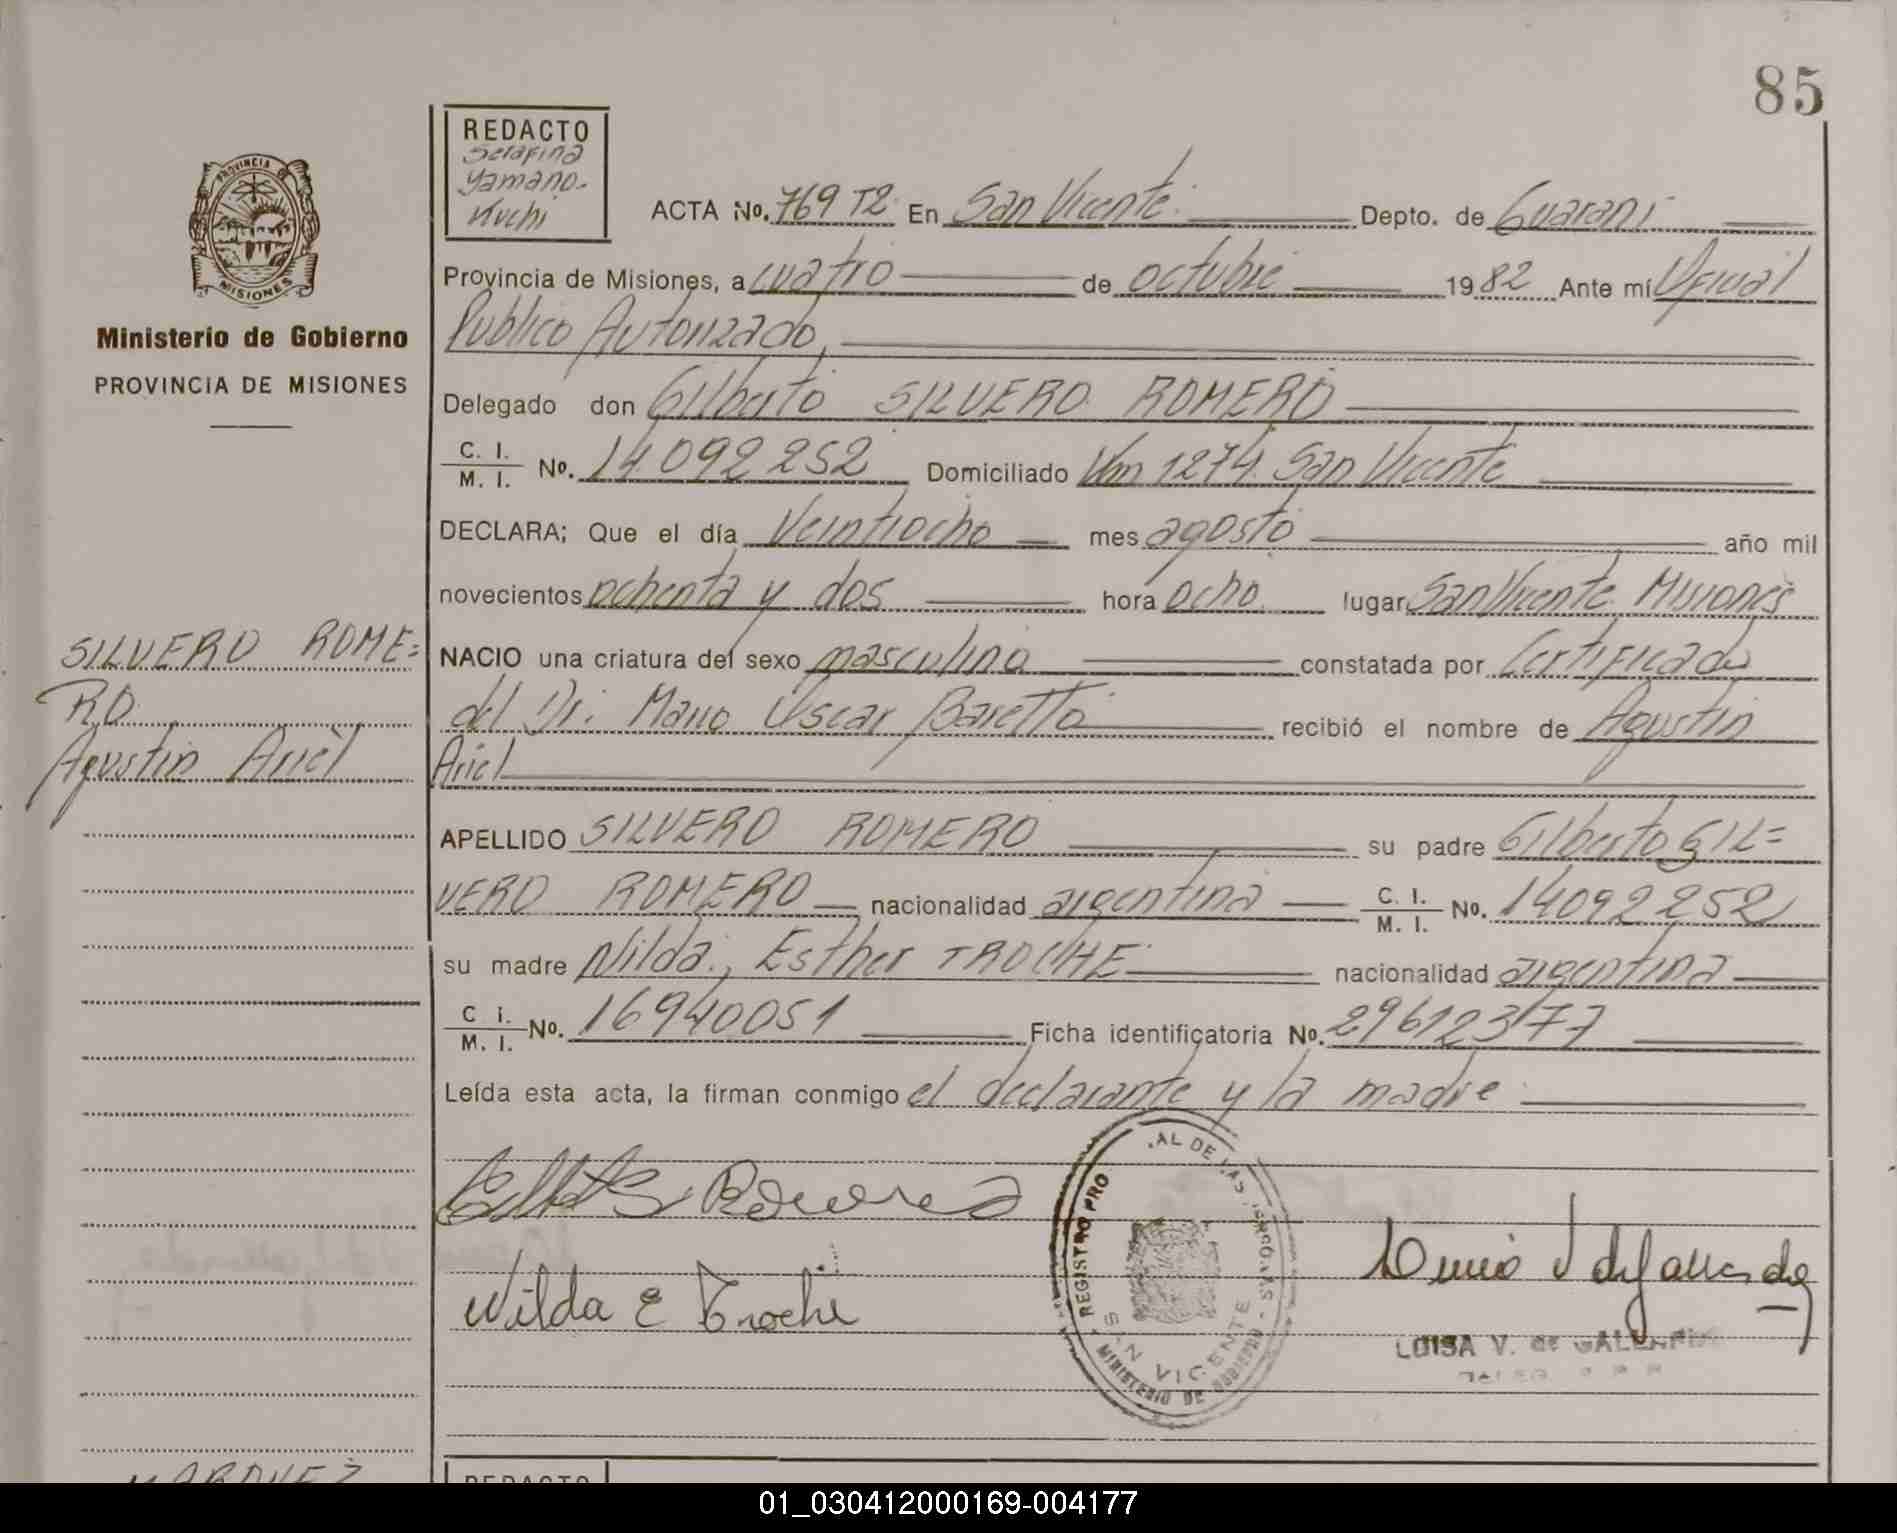 85
REDACTO
Serafina
Yamano-
Kuchi
PROVINCIA
MISIONES
Ministerio de Gobierno
PROVINCIA DE MISIONES
ACTA No. 769 T2. En San Vicente. Depto. de Guaraní
Provincia de Misiones, a cuatro de octubre 1982 Ante mí Oficial
Publico Autorizado,
Delegado don Gilberto SILVERO ROMERO
C. I. / M. I. No. 14.092252 Domiciliado Km 1274. San Vicente
DECLARA; Que el día Veintiocho mes agosto año mil
novecientos ochenta y dos hora ocho. lugar San Vicente Misiones
SILVERO ROME=
RO
Agustin Ariel
NACIO una criatura del sexo masculino constatada por Certificado
del Dr. Mario Oscar Baretto recibió el nombre de Agustin
Ariel
APELLIDO SILVERO ROMERO su padre Gilberto SIL=
VERO ROMERO nacionalidad argentina C. I. / M. I. No. 14092252
su madre Nilda, Esther TROCHE nacionalidad argentina
C. I. / M. I. No. 16940051 Ficha identificatoria No. 296123/77
Leída esta acta, la firman conmigo el declarante y la madre
Romero
Nilda E Troche
REGISTRO PRO AL DE LAS PERSONAS
SAN VICENTE
MINISTERIO DE GOBIERNO
LUISA V. de
MARQUEZ
REDACTO
01_030412000169-004177